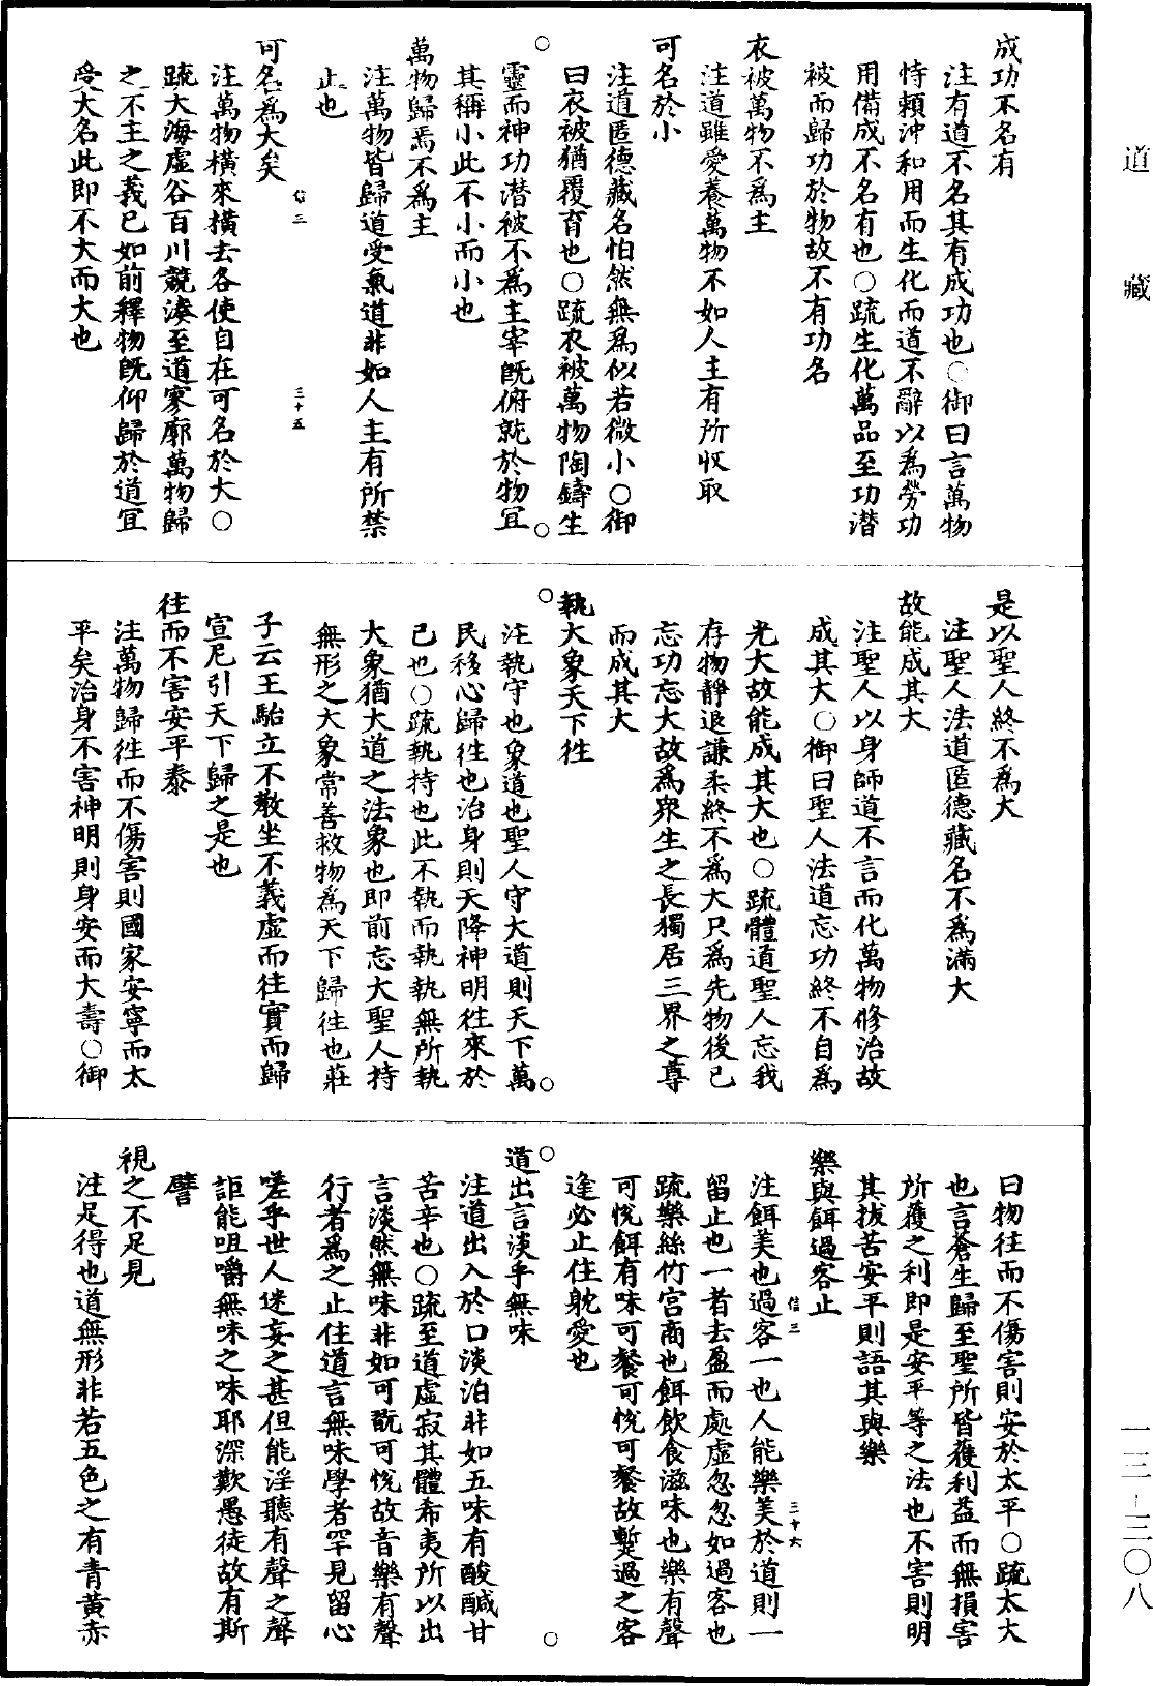 道藏
成功不名有
注有道不名其有成功也○御曰言萬物
恃賴沖和用而生化而道不辭以為勞功
用備成不名有也○疏生化萬品至功潜
被而歸功於物故不有功名
衣被萬物不為主
注道雖愛養萬物不如人主有所收取
可名於小
注道匿德藏名怕然無為似若微小○御
曰衣被猶覆育也○疏衣被萬物陶鑄生
靈而神功潜被不為主宰既俯就於物宜
其稱小此不小而小也
萬物歸焉不為主
注萬物皆歸道受氣道非如人主有所禁
止也
信三
三十五
可名為大矣
注萬物橫來橫去各使自在可名於大○
疏大海虛谷百川競湊至道寥廓萬物歸
之不主之義已如前釋物既仰歸於道宜
受大名此即不大而大也
是以聖人終不為大
注聖人法道匿德藏名不為滿大
故能成其大
注聖人以身師道不言而化萬物修治故
成其大○御曰聖人法道忘功終不自為
光大故能成其大也○疏體道聖人忘我
存物靜退謙柔終不為大只為先物後己
忘功忘大故為眾生之長獨居三界之尊
而成其大
執大象天下往
注執守也象道也聖人守大道則天下萬
民移心歸往也治身則天降神明往來於
己也○疏執持也此不執而執執無所執
大象猶大道之法象也即前忘大聖人持
無形之大象常善救物為天下歸往也莊
子云王駘立不教坐不義虛而往實而歸
宣尼引天下歸之是也
往而不害安平泰
注萬物歸往而不傷害則國家安寧而太
平矣治身不害神明則身安而大壽○御
曰物往而不傷害則安於太平○疏太大
也言蒼生歸至聖所皆獲利益而無損害
所獲之利即是安平等之法也不害則明
其拔苦安平則語其與樂
樂與餌過客止
信三
三十六
注餌美也過客一也人能樂美於道則一
留止也一者去盈而處虛忽忽如過客也
疏樂絲竹宮商也餌飲食滋味也樂有聲
可悅餌有味可餐可悅可餐故蹔過之客
逢必止住躭愛也
道出言淡乎無味
注道出入於口淡泊非如五味有酸鹹甘
苦辛也○疏至道虛寂其體希夷所以出
言淡然無味非如可翫可悅故音樂有聲
行者為之止住道言無味學者罕見留心
嗟乎世人迷妄之甚但能淫聽有聲之聲
詎能咀嚼無味之味耶深歎愚徒故有斯
譬
視之不足見
注足得也道無形非若五色之有青黃赤
一三-三〇八